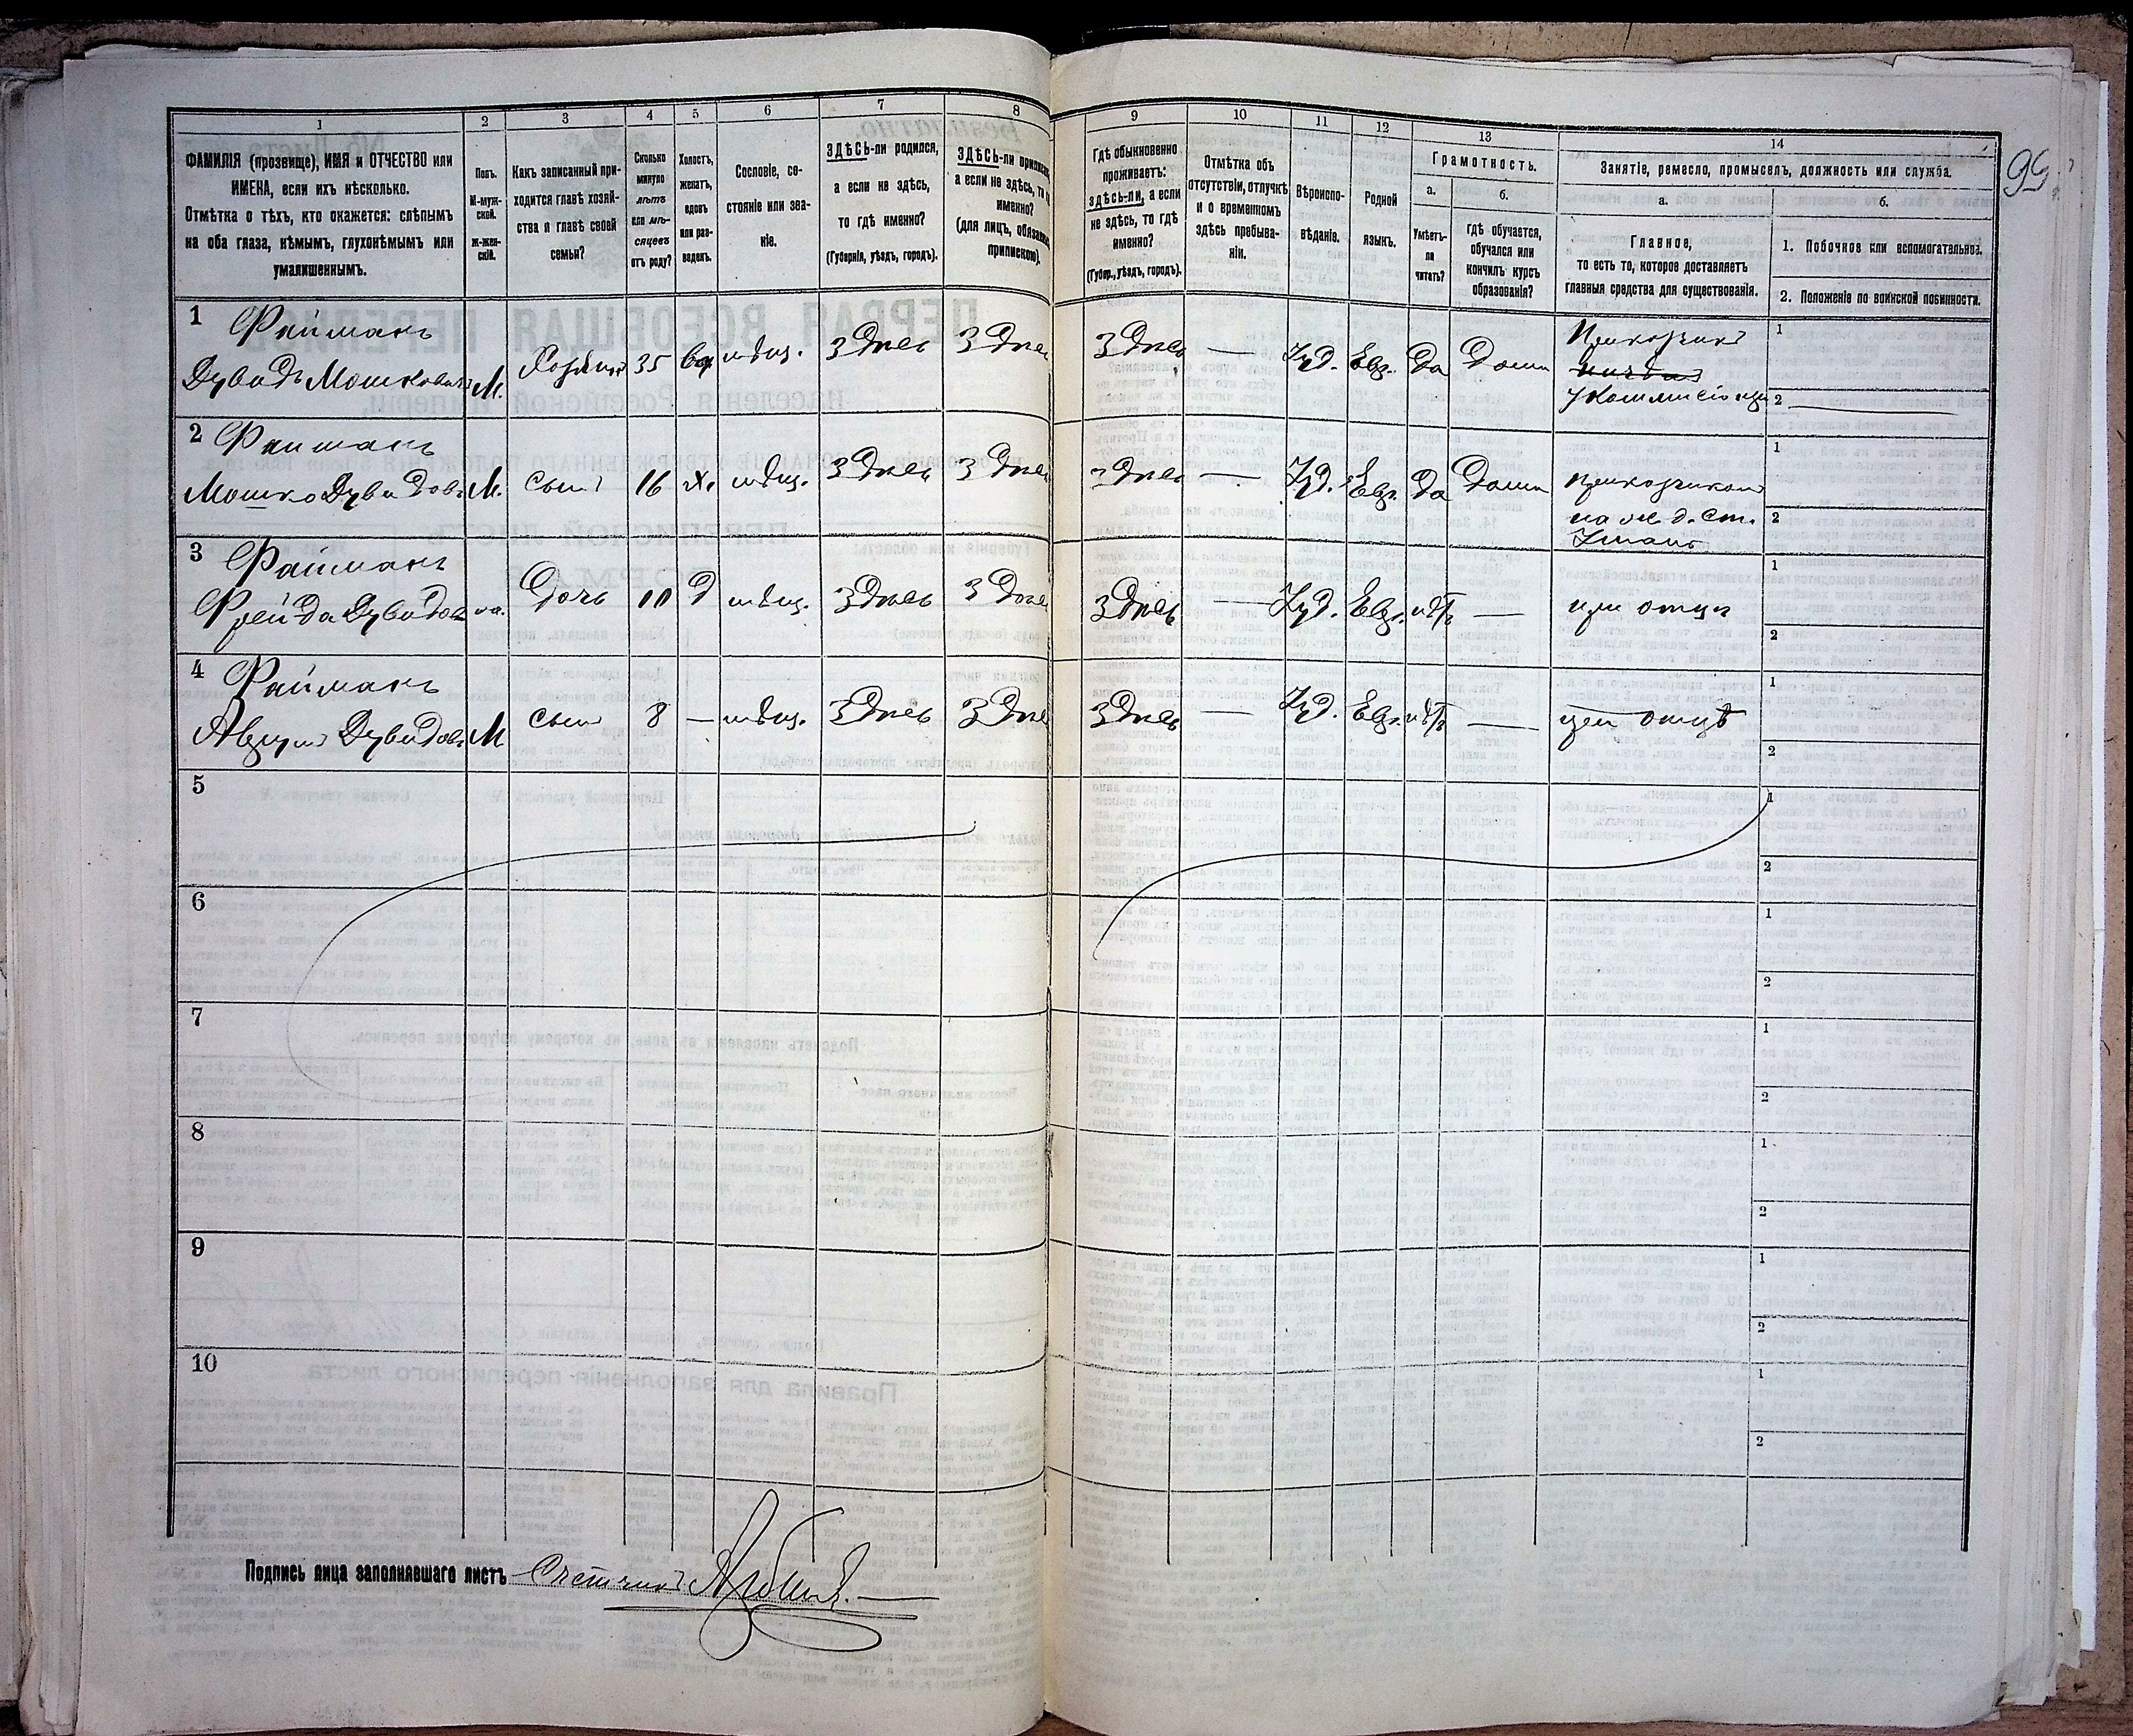 1 2 3 4 5 6 7 8 9 10 11 12 13 14
ФАМИЛІЯ (прозвище), ИМЯ и ОТЧЕСТВО или
ИМЕНА, если ихъ нѣсколько.
Отмѣтка о тѣхъ, кто окажется: слѣпымъ
на оба глаза, нѣмымъ, глухонѣмымъ или
умалишеннымъ.
Полъ.
М-муж-
ской.
Ж-жен-
скій.
Какъ записанный при-
ходится главѣ хозяй-
ства и главѣ своей
семьи?
Сколько
минуло
лѣтъ
или мѣ-
сяцевъ
отъ роду?
Холостъ,
женатъ,
вдовъ
или раз-
веденъ.
Сословіе, со-
стояніе или зва-
ніе.
ЗДѢСЬ-ли родился,
а если не здѣсь,
то гдѣ именно?
(Губернія, уѣздъ, городъ).
ЗДѢСЬ-ли
а если не здѣсь, то
именно?
(для лицъ,
припискою).
Гдѣ обыкновенно
проживаетъ:
здѣсь-ли, а если
не здѣсь, то гдѣ
именно?
(Губер., уѣздъ, городъ).
Отмѣтка объ
отсутствіи, отлучкѣ
и о временномъ
здѣсь пребыва-
ніи.
Вѣроиспо-
вѣданіе.
Родной
языкъ.
Грамотность.
а.
Умѣетъ-
ли
читать?
б.
гдѣ обучается,
обучался или
кончилъ курсъ
образованія?
Занятіе, ремесло, промыселъ, должность или служба.
а.
Главное,
то есть то, которое доставляетъ
главныя средства для существованія.
б.
1. Побочное или вспомогательное.
2. Положеніе по воинской повинности.
99
1 Файманъ
Дувидъ Мошковичъ М. Хозяинъ 35 вд мѣщ. Здѣсь Здѣсь Здѣсь — Іуд. Евр. да Дома
Прикащикъ
1
2
2 Файманъ
Мошко Дувидовъ М. Сынъ 16 х. мѣщ. Здѣсь Здѣсь Здѣсь — Іуд. Евр. да Дома прикащикомъ
на ж. д. Ст.
1
2
3 Файманъ
Фрейда Дувидов ж. Дочь 10 д мѣщ. Здѣсь Здѣсь Здѣсь — Іуд. Евр. нѣтъ — при отцѣ
1
2
4 Файманъ
Аврумъ Дувидовъ М Сынъ 8 — мѣщ. Здѣсь Здѣсь Здѣсь — Іуд. Евр. нѣтъ — при отцѣ
1
2
5
1
2
6
1
2
7
1
2
8
1
2
9
1
2
10
1
2
Подпись лица заполнявшаго листъ Счетчикъ